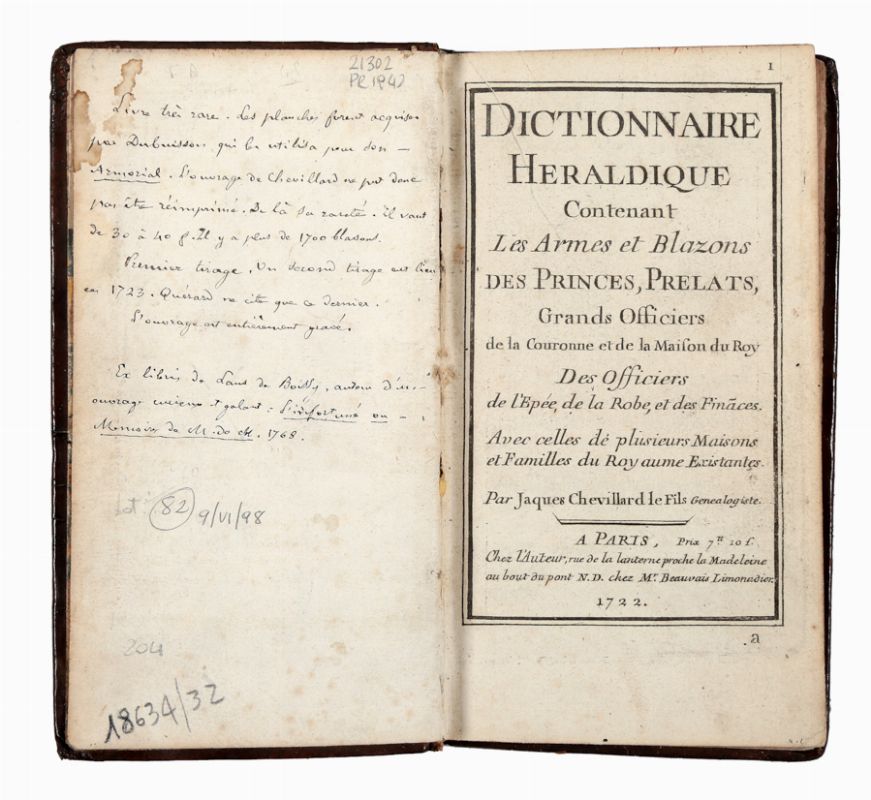 21302
Livre très rare. Les planches furent acquises
par Dubuisson qui les utilisa pour son –
Armorial. L'ouvrage de Chevillard ne put donc
pas être réimprimé. De là sa rareté. Il vaut
de 30 à 40 f. Il y a plus de 1700 blasons.
Premier tirage. Un second tirage eut lieu
en 1723. Quérard ne cite que ce dernier.
L'ouvrage est entièrement gravé.
Ex libris de Laus de Boissy, auteur d'un –
ouvrage curieux et galant : L'infortuné ou –
Memoires de M. de 1768.
Lot 82 9/VI/98
204
18634/32
1
DICTIONNAIRE
HERALDIQUE
Contenant
Les Armes et Blazons
DES PRINCES, PRELATS,
Grands Officiers
de la Couronne et de la Maiſon du Roy
Des Officiers
de l'Epée, de la Robe, et des Finãces.
Avec celles dé plusieurs Maisons
et Familles du Royaume Existantes.
Par Jaques Chevillard le Fils Genealogiste.
A PARIS, Prix 7ᵗᵗ 10 ſ.
Chez l'Auteur, rue de la lanterne proche la Madeleine
au bout du pont N.D. chez Mʳ. Beauvais Limonadier.
1722.
a